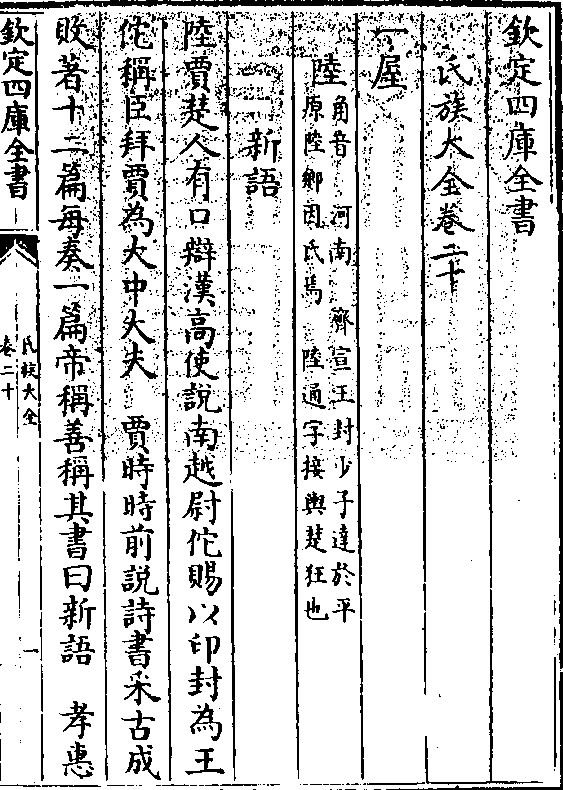 欽定四庫全書
氏族大全卷二十
一屋
陸
角音 河南 齊宣王封少子達於平
原陸鄉因氏焉 陸通字接輿楚狂也
新語
陸賈楚人有口辯漢高使說南越尉佗賜以印封為王
佗稱臣拜賈為大中大夫 賈時時前說詩書采古成
敗著十二篇每奏一篇帝稱善稱其書曰新語 孝惠
欽定四庫全書
氏族大全
卷二十
一